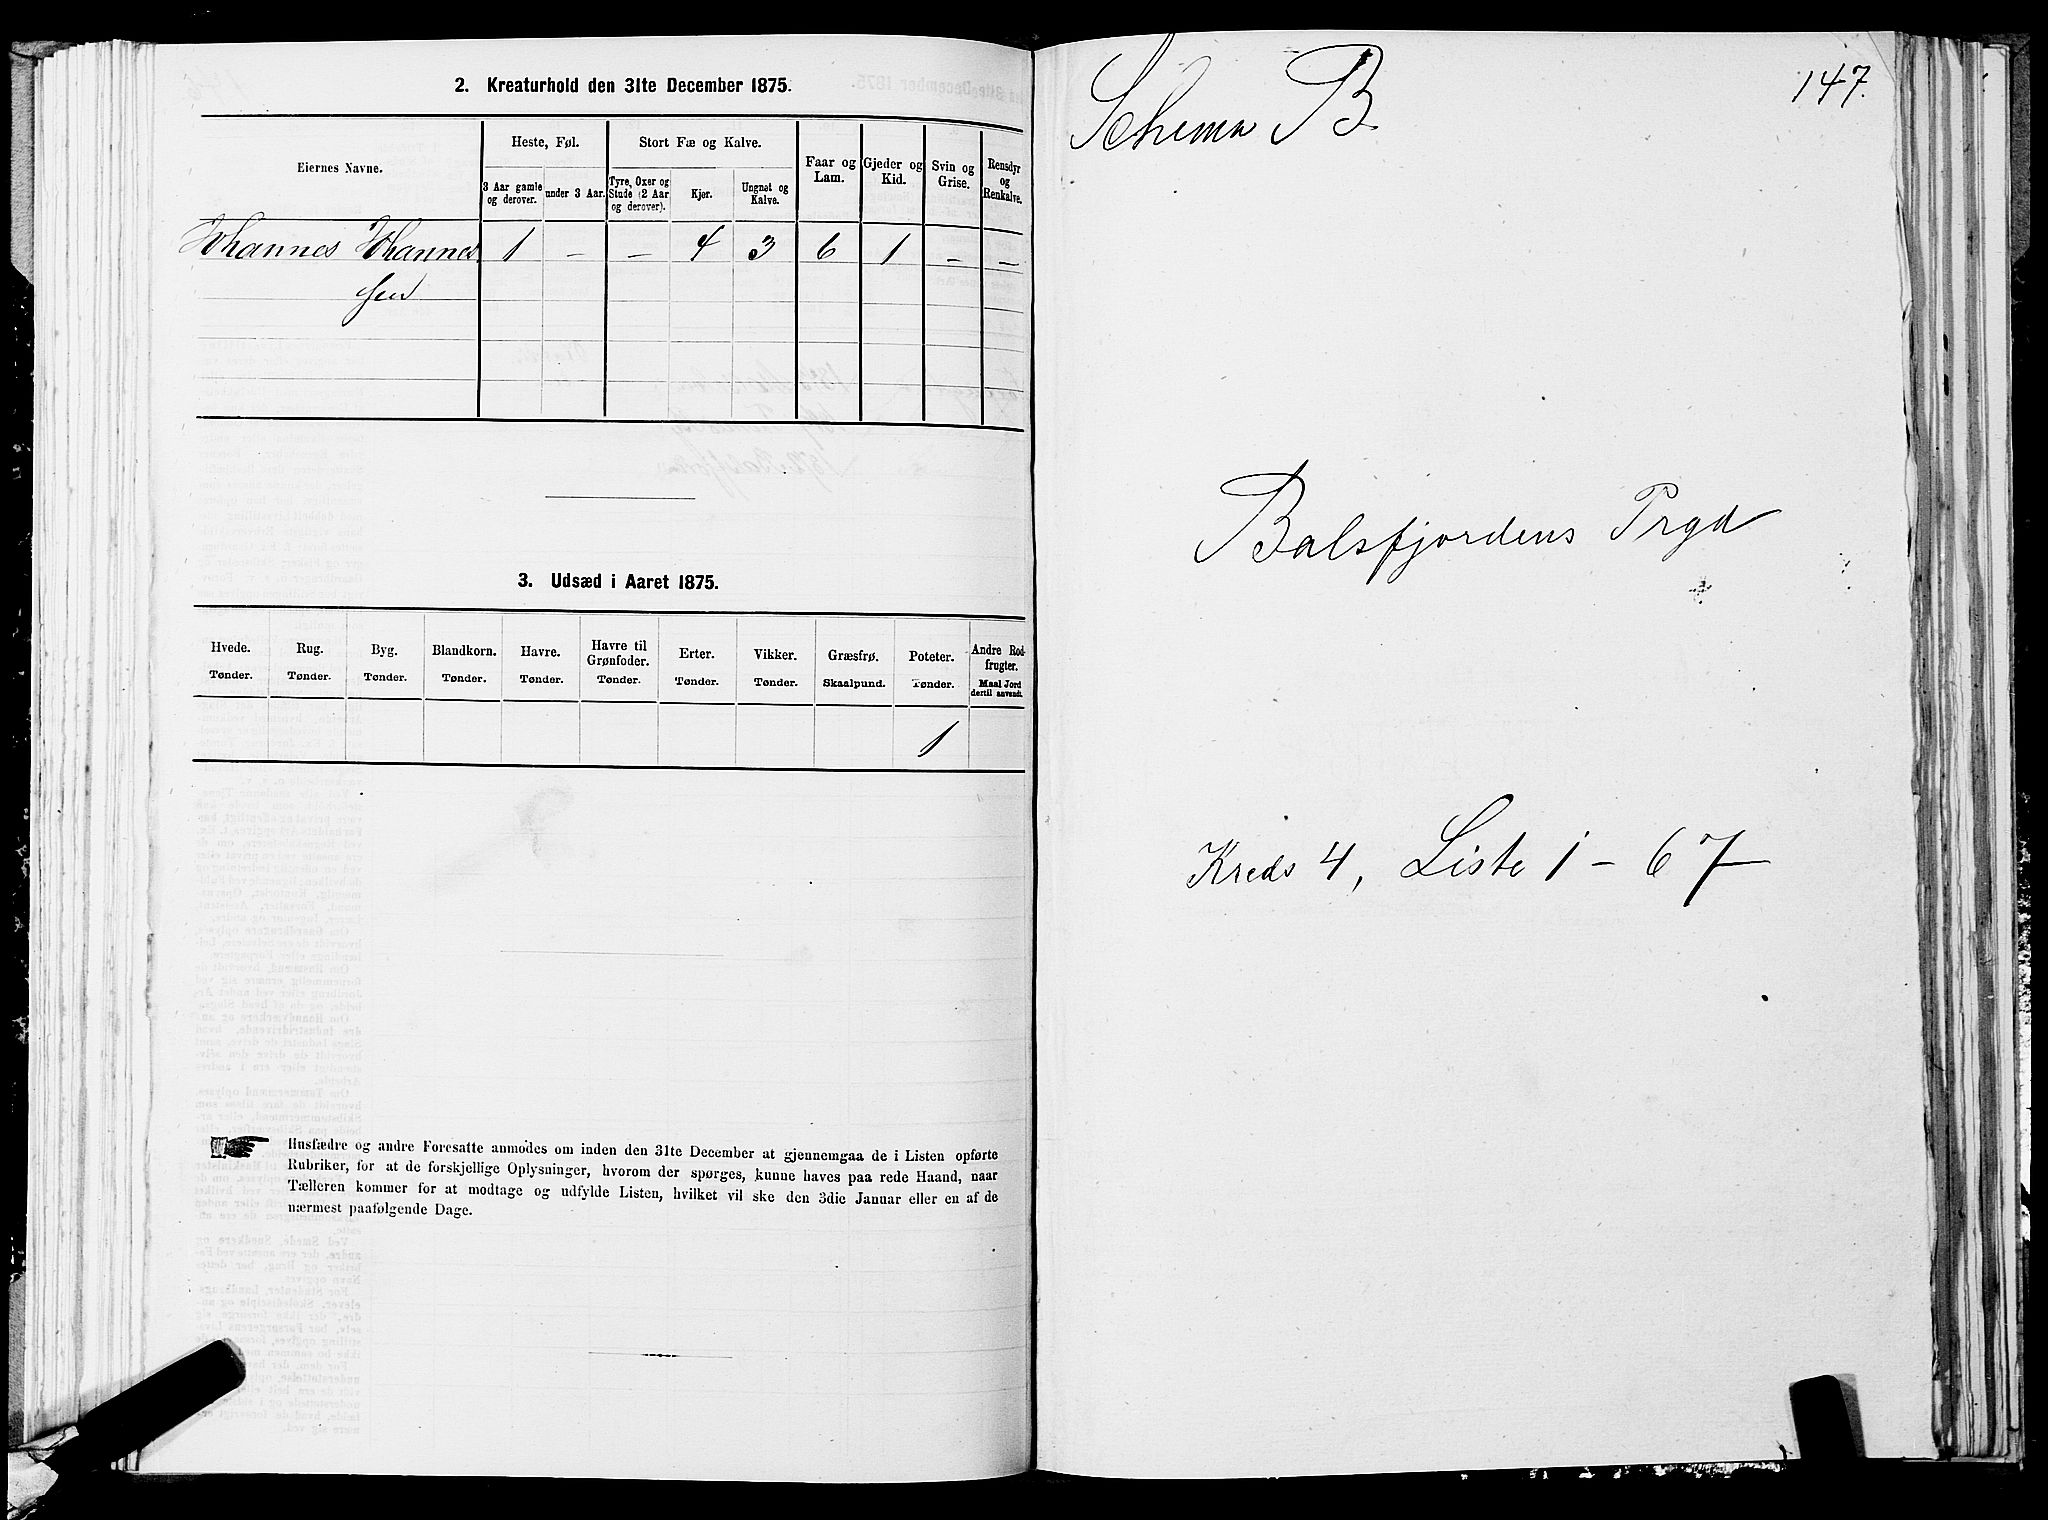 2. Kreaturhold den 31te December 1875.
Eiernes Navne.
Heste, Føl.
Stort Fæ og Kalve.
Faar og Lam.
Gjeder og Kid.
Svin og Grise.
Rensdyr og Renkalve.
3 Aar gamle og derover.
under 3 Aar.
Tyre, Oxer og Stude (2 Aar og derover).
Kjør.
Ungnøt og Kalve.
Johannes Johannes 1 - - 4 3 6 1 - -
sen
3. Udsæd i Aaret 1875.
Hvede. Rug. Byg. Blandkorn. Havre. Havre til Grønfoder. Erter. Vikker. Græsfrø. Poteter. Andre Rodfrugter.
Tønder. Tønder. Tønder. Tønder. Tønder. Tønder. Tønder. Tønder. Skaalpund. Tønder. Maal Jord dertil anvendt.
1
Husfædre og andre Foresatte anmodes om inden den 31te December at gjennemgaa de i Listen opførte
Rubriker, for at de forskjellige Oplysninger, hvorom der spørges, kunne haves paa rede Haand, naar
Tælleren kommer for at modtage og udfylde Listen, hvilket vil ske den 3die Januar eller en af de
nærmest paafølgende Dage.
147.
Schema B
Balsfjordens Prgd
Kreds 4, Liste 1 - 67